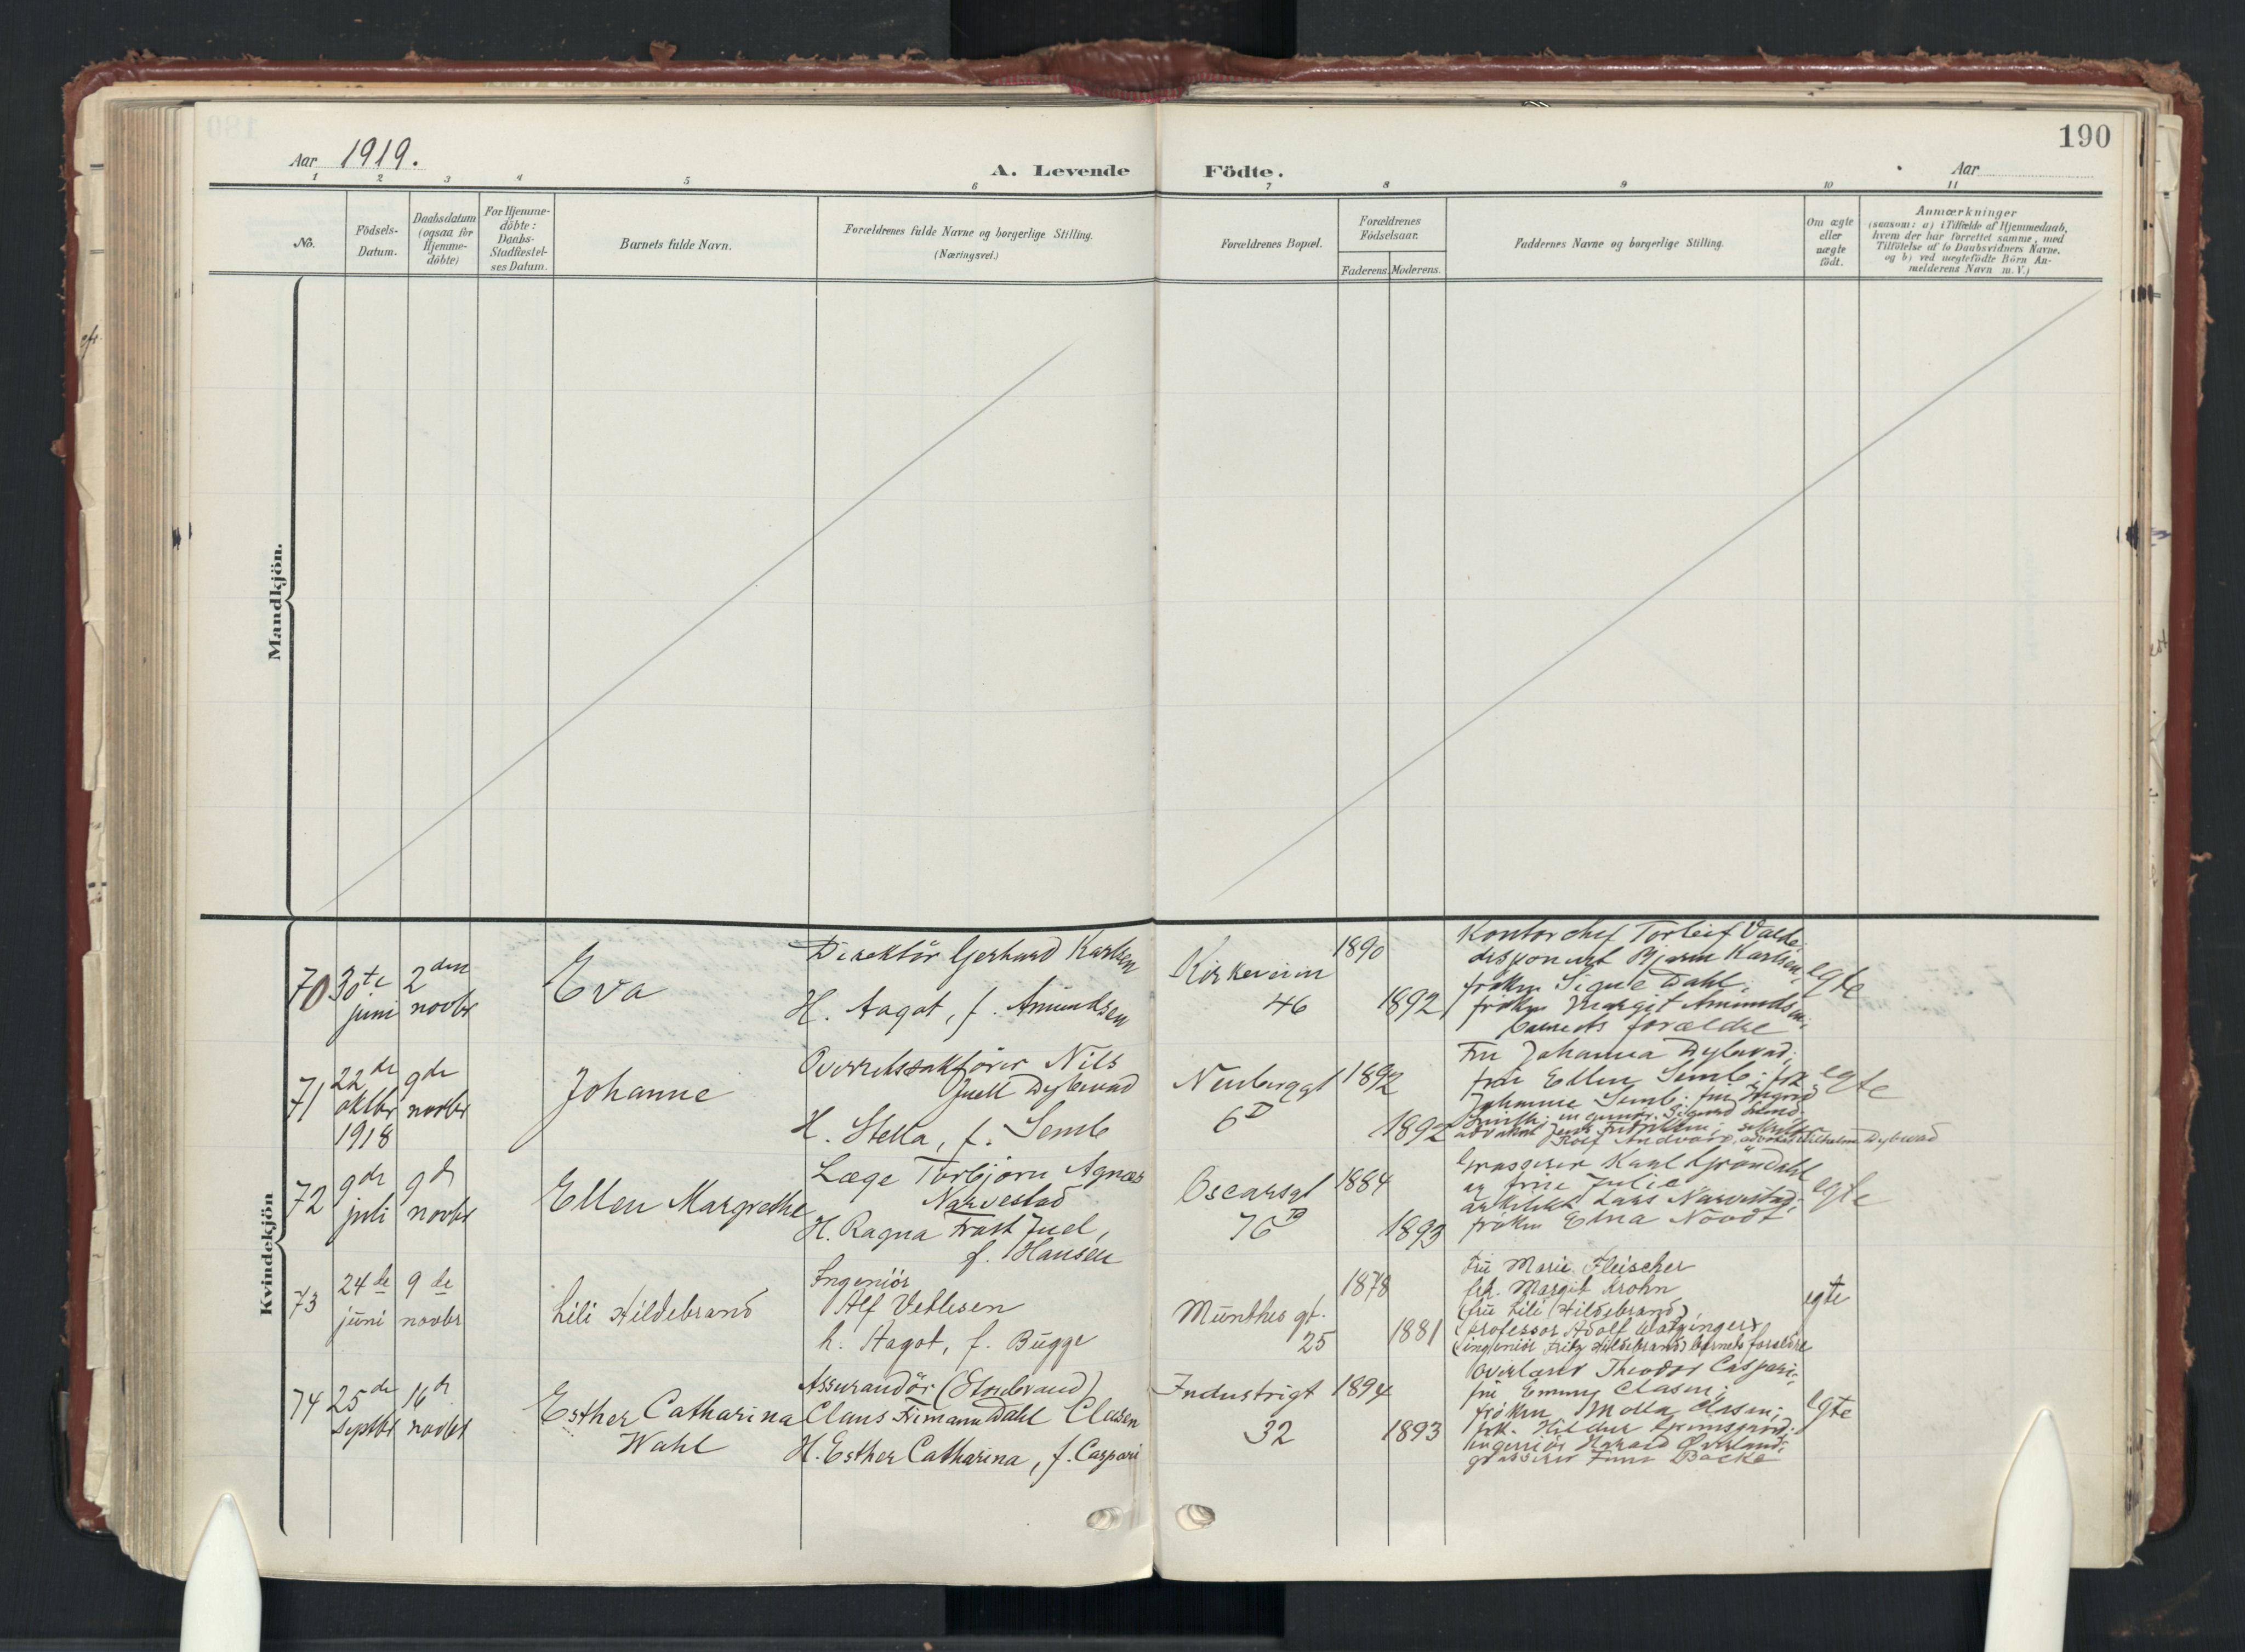 190
Aar 1919.
A. Levende Födte.
Aar
1 2 3 4 5 6 7 8 9 10 11
No.
Födsels-
Datum.
Daabsdatum
(ogsaa for
Hjemme-
döbte)
For Hjemme-
döbte:
Daabs-
Stadfæstel-
ses Datum.
Barnets fulde Navn.
Forældrenes fulde Navne og borgerlige Stilling.
(Næringsvei.)
Forældrenes Bopæl.
Forældrenes
Födselsaar.
Faderens. Moderens.
Faddernes Navne og borgerlige Stilling.
Om ægte
eller
uægte
födt.
Anmærkninger
(saasom: a) i Tilfælde af Hjemmedaab,
hvem der har forrettet samme, med
Tilföielse af to Daabsvidners Navne.
og b) ved uægtefödte Börn An-
melderens Navn m. V.)
Mandkjön.
Kvindekjön
70
30te
juni
2den
novbr
Eva
Direktör Gerhard Karlsen
H. Aagot, f. Amundsen
Kirkeveien
46
1890
1892
Kontorchef Torleif
disponent Bjarne Karlsen,
fröken Signe Dahl;
fröken Margit Amundsen;
barnets forældre
egte
71
22de
oktbr
1918
9de
novbr
Johanne
Overretssakförer Nils
Juell Dybwad
H. Stella, f. Semb
Neuberggt
6D
1892
1892
Fru Johanna Dybwad;
fru Ellen Semb; frk
Johanne Semb; fru Ingrid
Rolf Andvord, advokat Vilhelm Dybwad
egte
72
9de
juli
9de
novbr
Ellen Margrethe
Læge Torbjörn Agnæs
Narvestad
H. Ragna Frost Juel,
f. Hansen
Oscarsgt
76B
1884
1893
Grosserer Karl Gröndahl
og frue Julie
arkitekt Lars Narvestad;
fröken Elna Noodt
egte
73
24de
juni
9de
novbr
Lili Hildebrand
Ingeniör
Alf Vetlesen
h. Aagot, f. Bugge
Munthes gt.
25
1878
1881
Fru Marie Fleischer
frk. Margit Krohn
(fru Lili Hildebrand),
(professor Adolf Watzinger),
(ingeniör Fritz Hildebrand) barnets forældre
egte
74
25de
septbr
16de
novbr
Esther Catharina
Wahl
Assurandör (Storebrand)
Claus Fiemann Dahl Clasen
H. Esther Catharina, f. Caspari
Industrigt
32
1894
1893
Overlærer Theodor Caspari;
fru Emmy Clasen;
fröken Molla Clasen;
frk. Hildur
ingeniör Harald Överland;
grosserer Finn Backe
egte